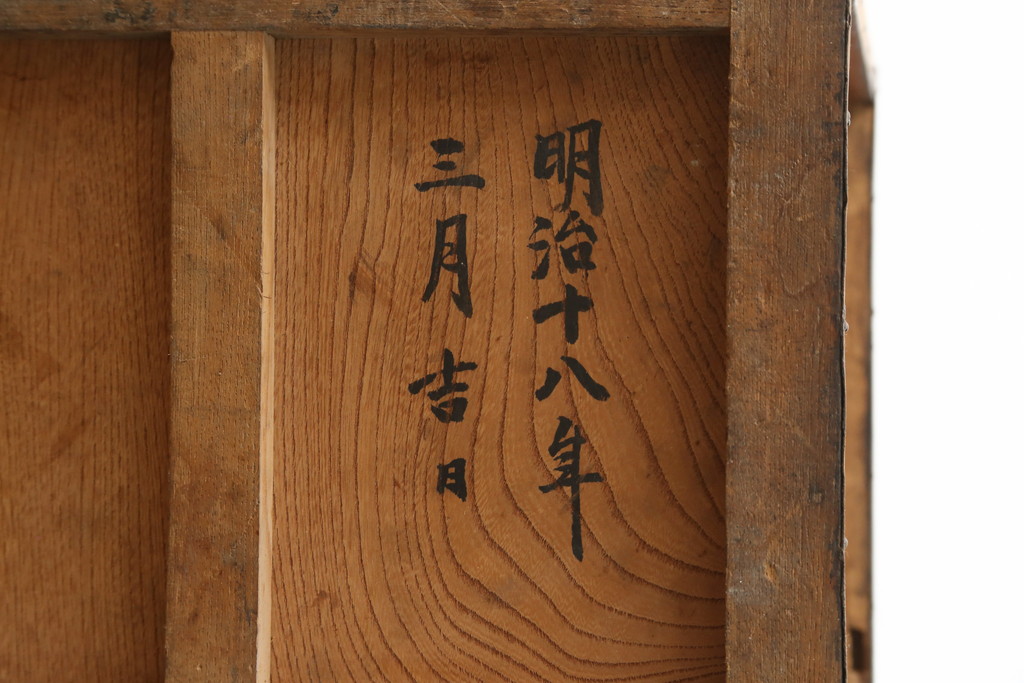 明治十八年
三月吉日